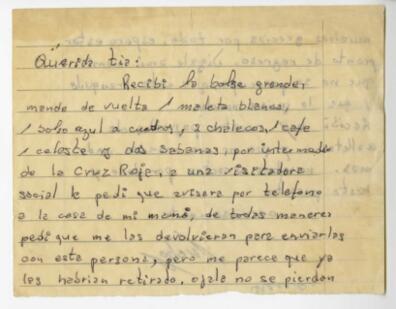 Querida tia:
Recibi la bolsa grande,
mando de vuelta 1 maleta blanca,
1 azul a cuadros, 2 chalecos, 1 cafe
1 celeste y dos sabanas, por intermedio
de la Cruz Roja, a una visitadora
social le pedi que avisara por telefono
a la casa de mi mamá, de todas maneras
pedi que me las devolvieran para enviarlas
con esta persona, pero me parece que ya
las habrian retirado, ojala no se pierdan